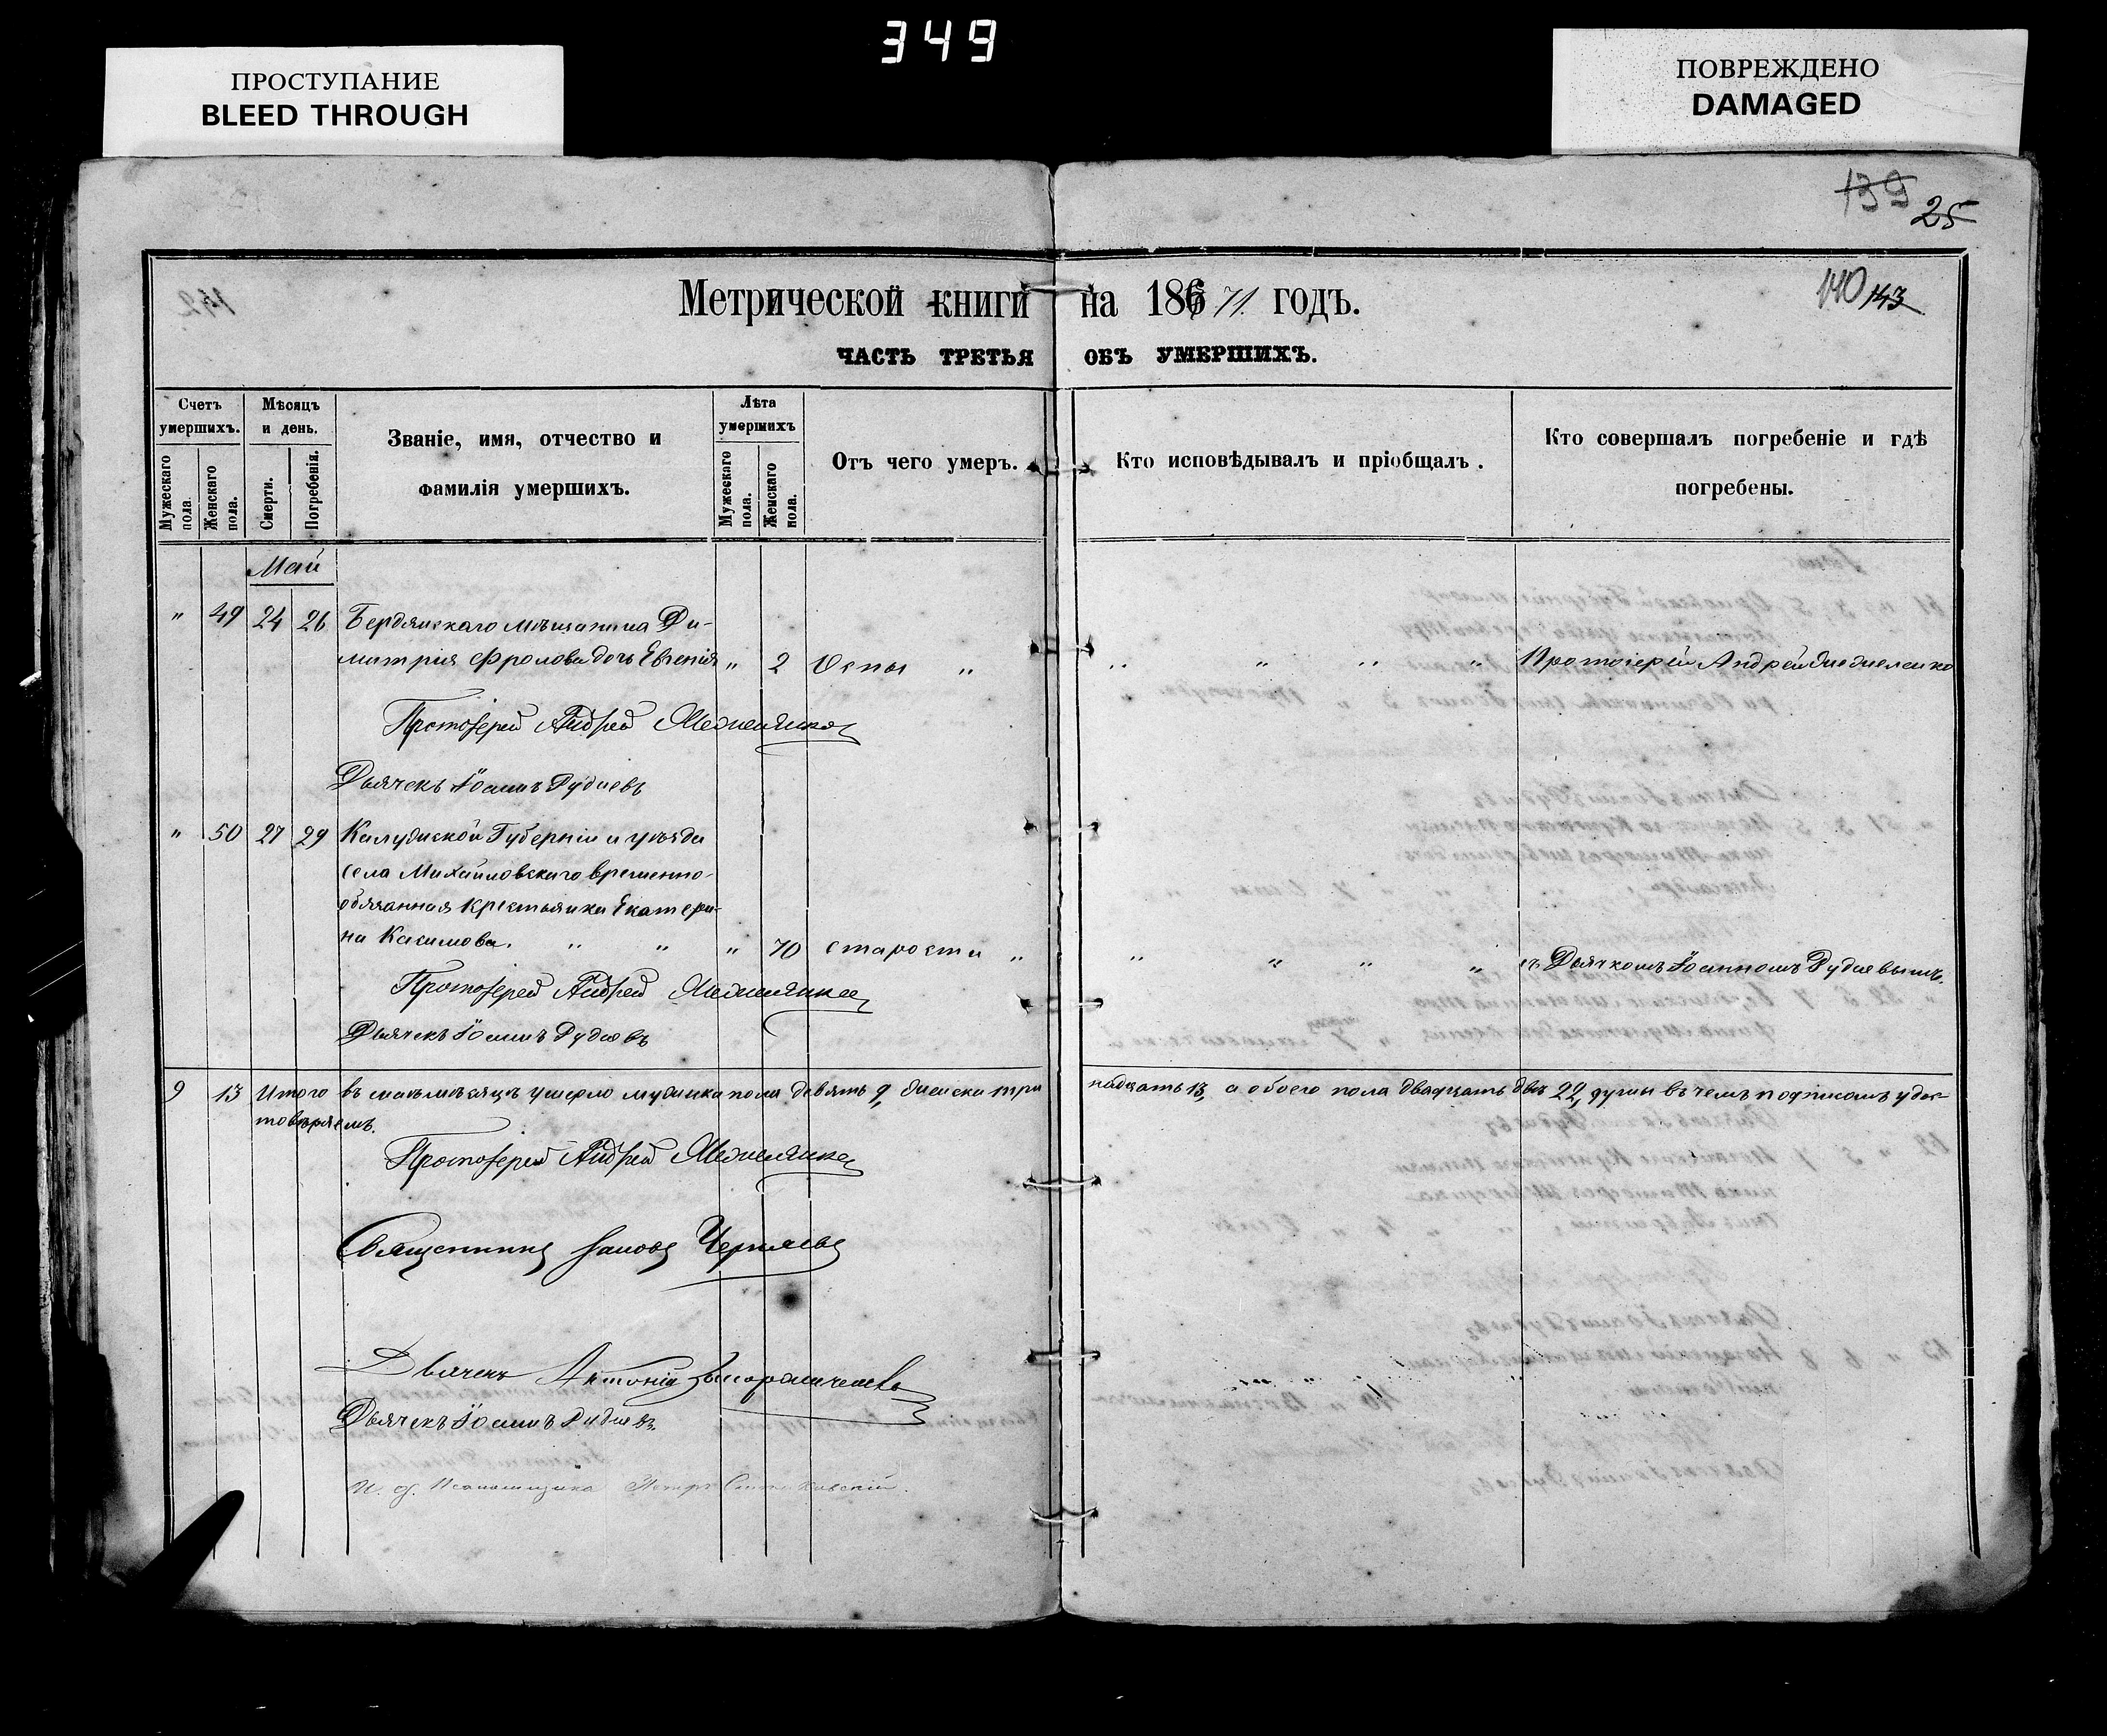 349
ПРОСТУПАНИЕ
BLEED THROUGH
ПОВРЕЖДЕНО
DAMAGED
139 25
140 143
Метрической книги на 18671 годъ.
ЧАСТЬ ТРЕТЬЯ ОБЪ УМЕРШИХЪ.
Счетъ умершихъ.
Мужескаго пола
Женскаго пола.
Мѣсяцъ и день.
Смерти.
Погребенія.
Званіе, имя, отчество и
фамилія умершихъ.
Лѣта умершихъ
Мужескаго пола.
Женскаго пола.
Отъ чего умеръ.
Кто исповѣдывалъ и пріобщалъ.
Кто совершалъ погребеніе и гдѣ
погребены.
Май
" 49 24 26 Бердянскаго мѣщанина Ди-
митрія Фролова дочь Евгенія " 2 Оспы " " " " " Протоіерей Андрей
Протоіерей Андрей
Дьячекъ Іоаннъ
" 50 27 29 Калужской Губерніи и уѣзда
села Михайловскаго временно-
обязанная крестьянка Екатери-
на Касимова. " " " 70 старости " " " " " съ Дьячкомъ Іоанномъ
Протоіерей Андрей
Дьячекъ Іоаннъ
9 13 Итого въ маѣ мѣсяцѣ умерло мужеска пола девять 9, женска три
надцать 13, а обоего пола двадцать двѣ 22, души въ чемъ подписомъ удос-
товѣряемъ.
Протоіерей Андрей
Священникъ Іаковъ Черняевъ
Дьячекъ Антоній
Дьячекъ Іоаннъ
И. д. Псаломщика Петръ